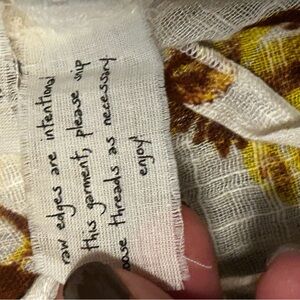 raw edges are intentional
this garment, please snip
loose threads as necessary.
enjoy!